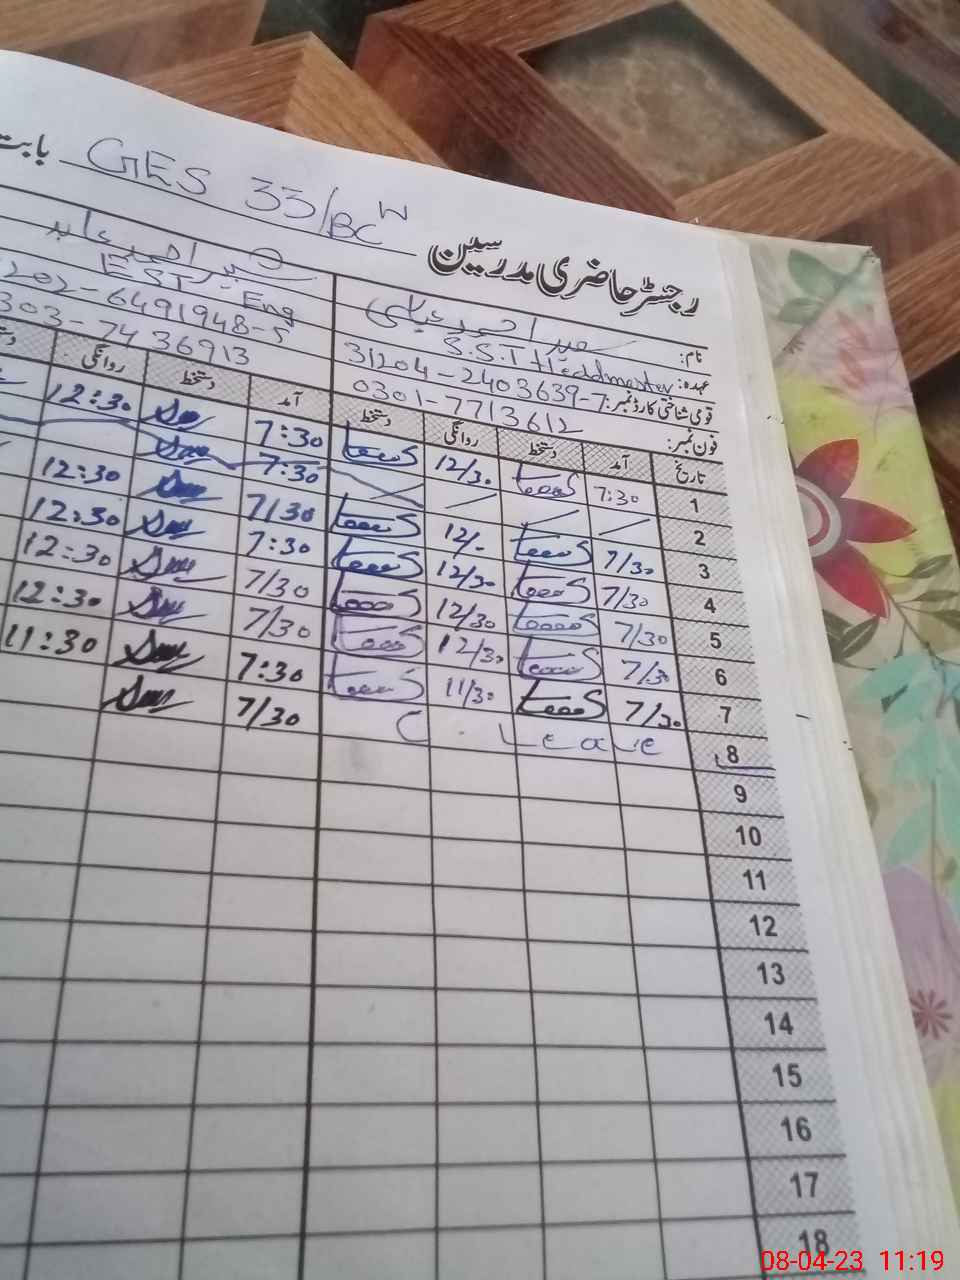 بابت GES 33/BC W
رجسٹر حاضری مدرسین
نام: صغیر احمد عباسی
عہدہ: S.S.T Headmaster EST Eng
قومی شناختی کارڈ نمبر: 31204-2403639-7 202-6491948-5
فون نمبر: 0301-7713612 303-7436913
تاریخ آمد دستخط روانگی دستخط آمد دستخط روانگی
1 7:30 12/30 7:30 12:30
2 7:30
3 7/30 12/- 7/30 12:30
4 7/30 12/30 7:30 12:30
5 7/30 12/30 7/30 12:30
6 7/30 12/30 7/30 12:30
7 7/30 11/30 7:30 11:30
8 C. Leave 7/30
9
10
11
12
13
14
15
16
17
18
08-04-23 11:19